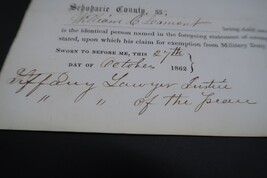 Schoharie County, ss:
William C. Lamont
is the identical person named in the foregoing
stated, upon which his claim for exemption from Military Duty
SWORN TO BEFORE ME, THIS 27th
DAY OF October 1862
Tiffany Lawyer Justice
" " of the Peace